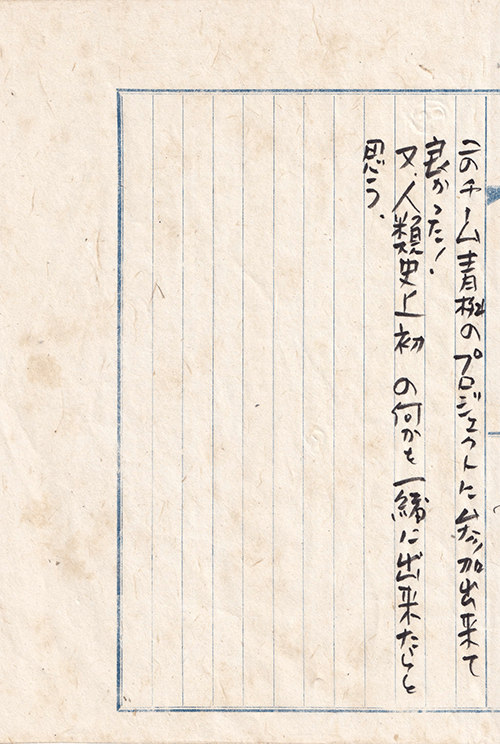 このチーム青極のプロジェクトに参加出来て
良かった!
又、人類史上初の何かを一緒に出来たらと
思う、